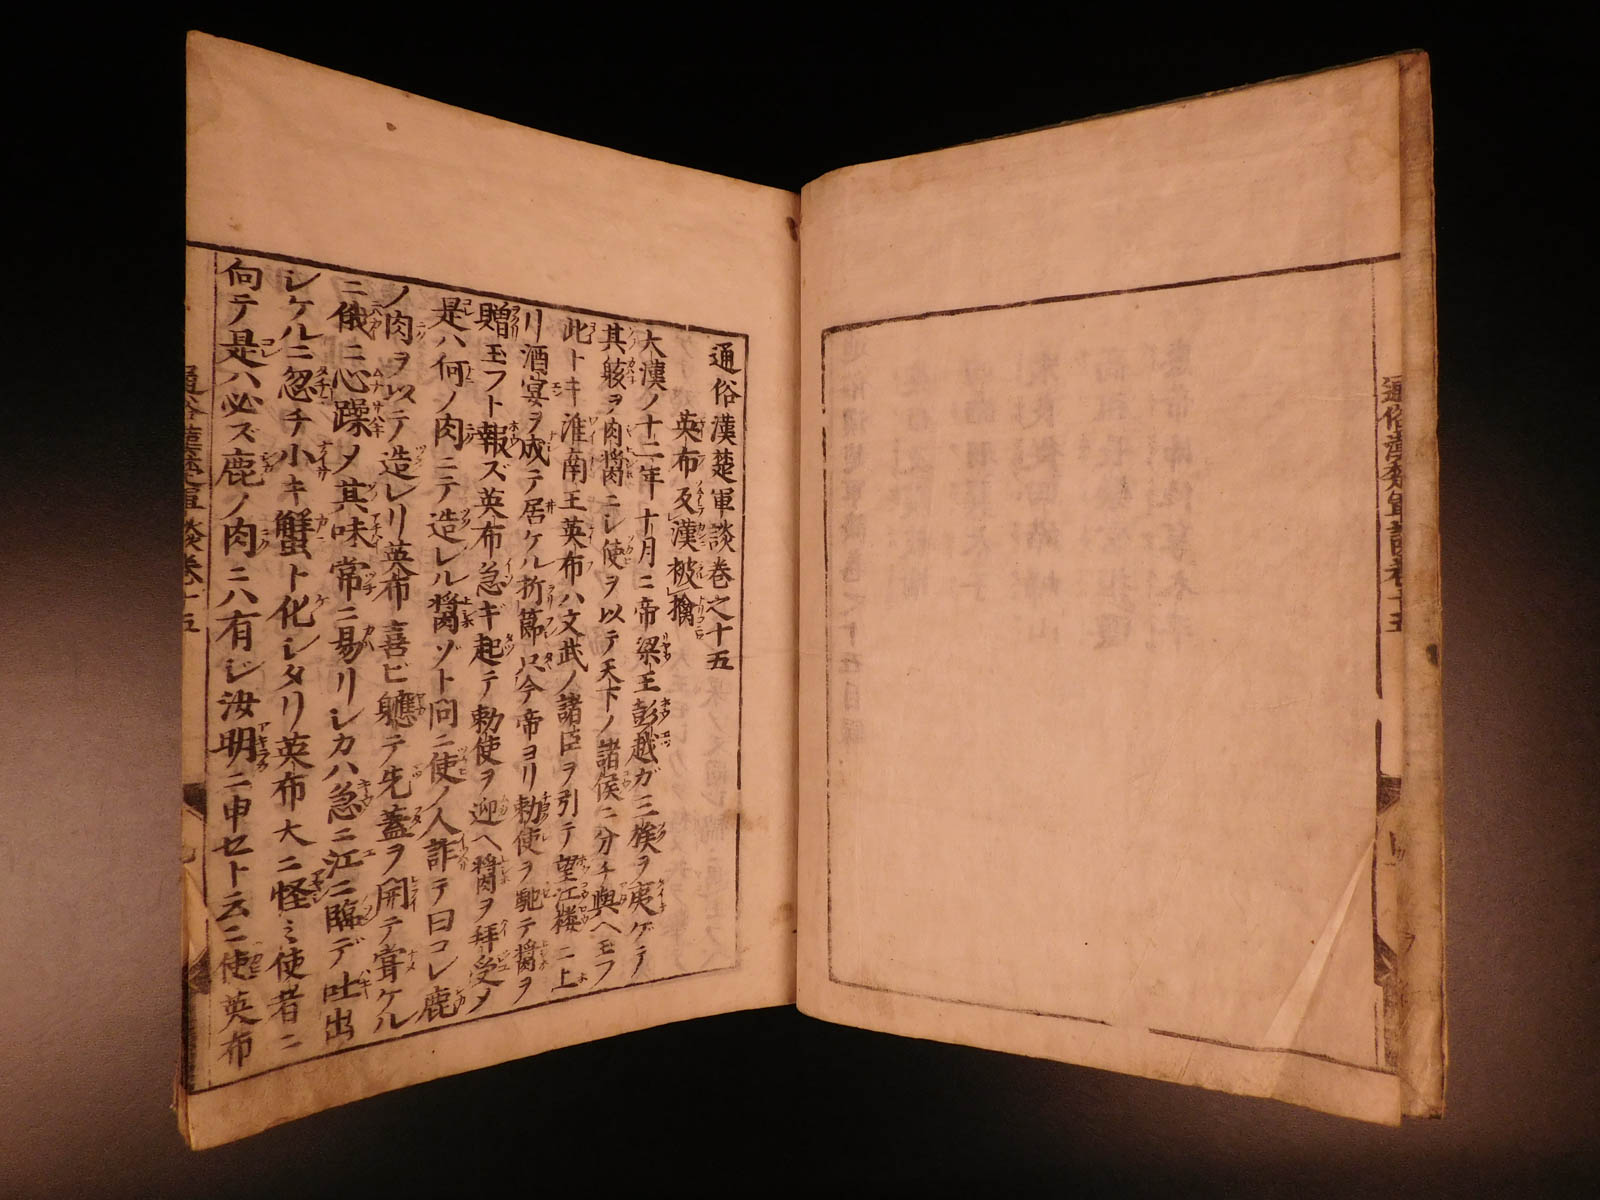 通俗漢楚軍談巻之十五
英布及漢被擒
大漢ノ十二年十月ニ帝梁王彭越ガ三族ヲ夷ゲテ
其骸ヲ肉醤ニシ使ヲ以テ天下ノ諸侯ニ分チ與ヘ玉フ
此トキ淮南王英布ハ文武ノ諸臣ヲ引テ望江楼ニ上
リ酒宴ヲ成テ居ケル折節只今帝ヨリ勅使ヲ馳テ醤ヲ
贈玉フト報ズ英布急ギ起テ勅使ヲ迎ヘ醤ヲ拜受メ
是ハ何ノ肉ニテ造レル醤ゾト問ニ使ノ人詐テ曰コレ鹿
ノ肉ヲ以テ造レリ英布喜ビ軈テ先蓋ヲ開テ甞ケル
ニ俄ニ心躁メ其味常ニ易リシカハ急ニ江ニ臨デ吐出
シケルニ忽チ小キ蟹ト化シタリ英布大ニ怪ミ使者ニ
向テ是ハ必ズ鹿ノ肉ニハ有ジ汝明ニ申セト云ニ使英布